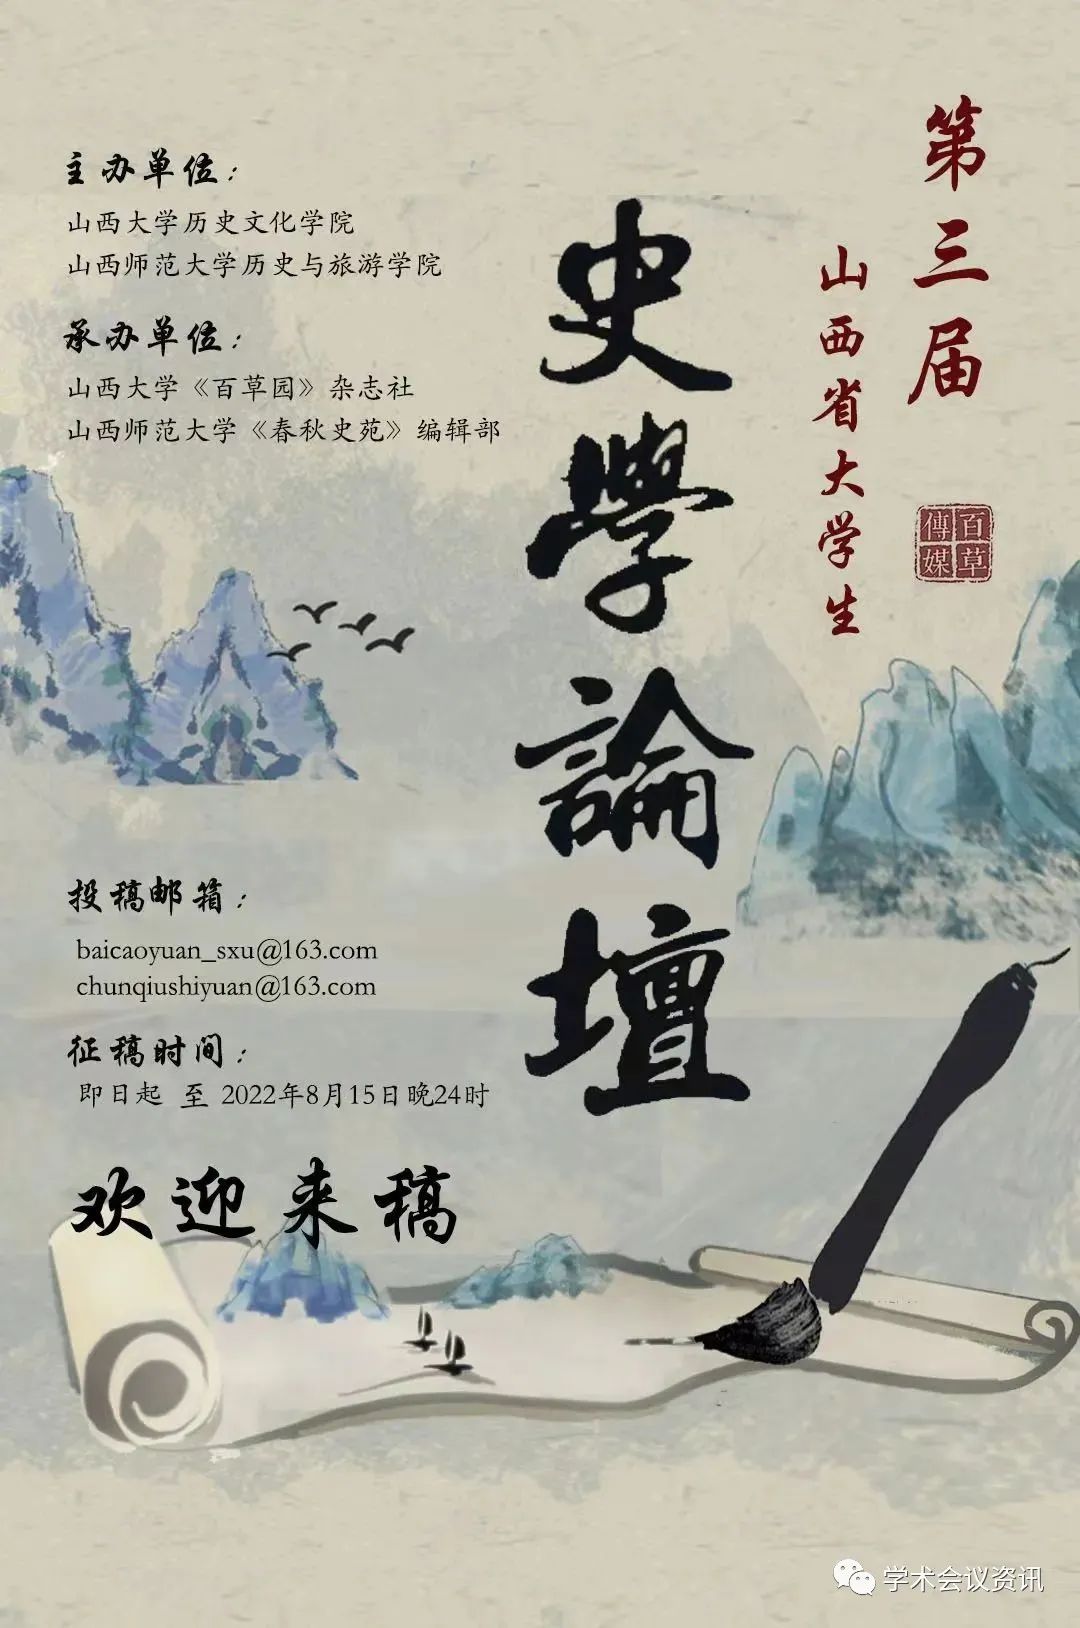 第三届
山西省大学生
史學論壇
百草
傳媒
主办单位：
山西大学历史文化学院
山西师范大学历史与旅游学院
承办单位：
山西大学《百草园》杂志社
山西师范大学《春秋史苑》编辑部
投稿邮箱：
baicaoyuan_sxu@163.com
chunqiushiyuan@163.com
征稿时间：
即日起 至 2022年8月15日晚24时
欢迎来稿
学术会议资讯